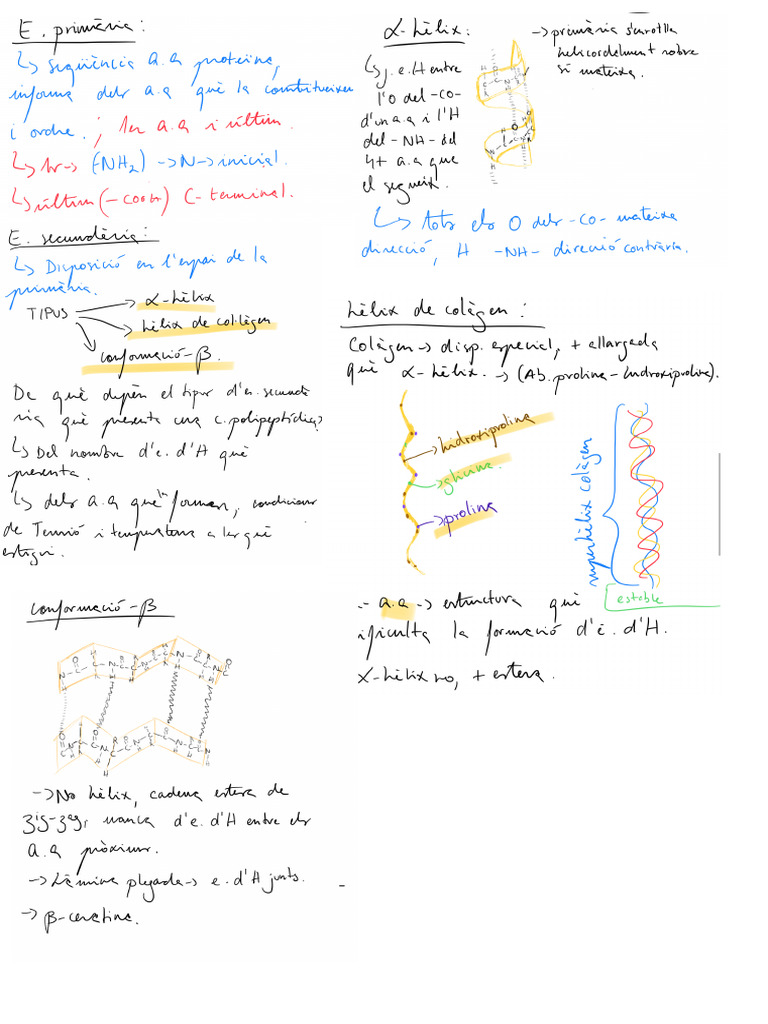 E. primària:
↳ seqüència a.a proteïna,
informa dels a.a què la constitueixen
i ordre.; 1er a.a i últim.
↳ 1r → (-NH2) → N → inicial.
↳ últim (-COOH) C-terminal.
E. secundària:
↳ Disposició en l'espai de la
primària.
TIPUS
α-hèlix
hèlix de col·làgen
conformació-β.
De què depèn el tipus d'e. secundà
ria què presenta una c. polipeptídica?
↳ Del nombre d'e. d'H què
presenta.
↳ dels a.a què la formen, condicions
de Tensió i temperatura a les què
estigui.
α-hèlix:
→ primària s'enrotlla
helicoïdalment sobre
si mateixa.
↳ f. e. H entre
l'O del -CO-
d'un a.a i l'H
del -NH- del
4t a.a que
el segueix.
↳ tots els O dels -CO- mateixa
direcció, H -NH- direcció contrària.
hèlix de colàgen:
Colàgen → disp. especial, + allargada
què α-hèlix. → (Ab. prolina-hidroxiprolina).
hidroxiprolina
glicina
prolina
superhèlix colàgen
estable
a.a → estructura què
ificulta la formació d'e. d'H.
α-hèlix no, + estesa.
conformació-β
→ No hèlix, cadena estesa de
zig-zag, manca d'e. d'H entre els
a.a pròxims.
→ Làmina plegada → e. d'H junts.
→ β-ceratina.